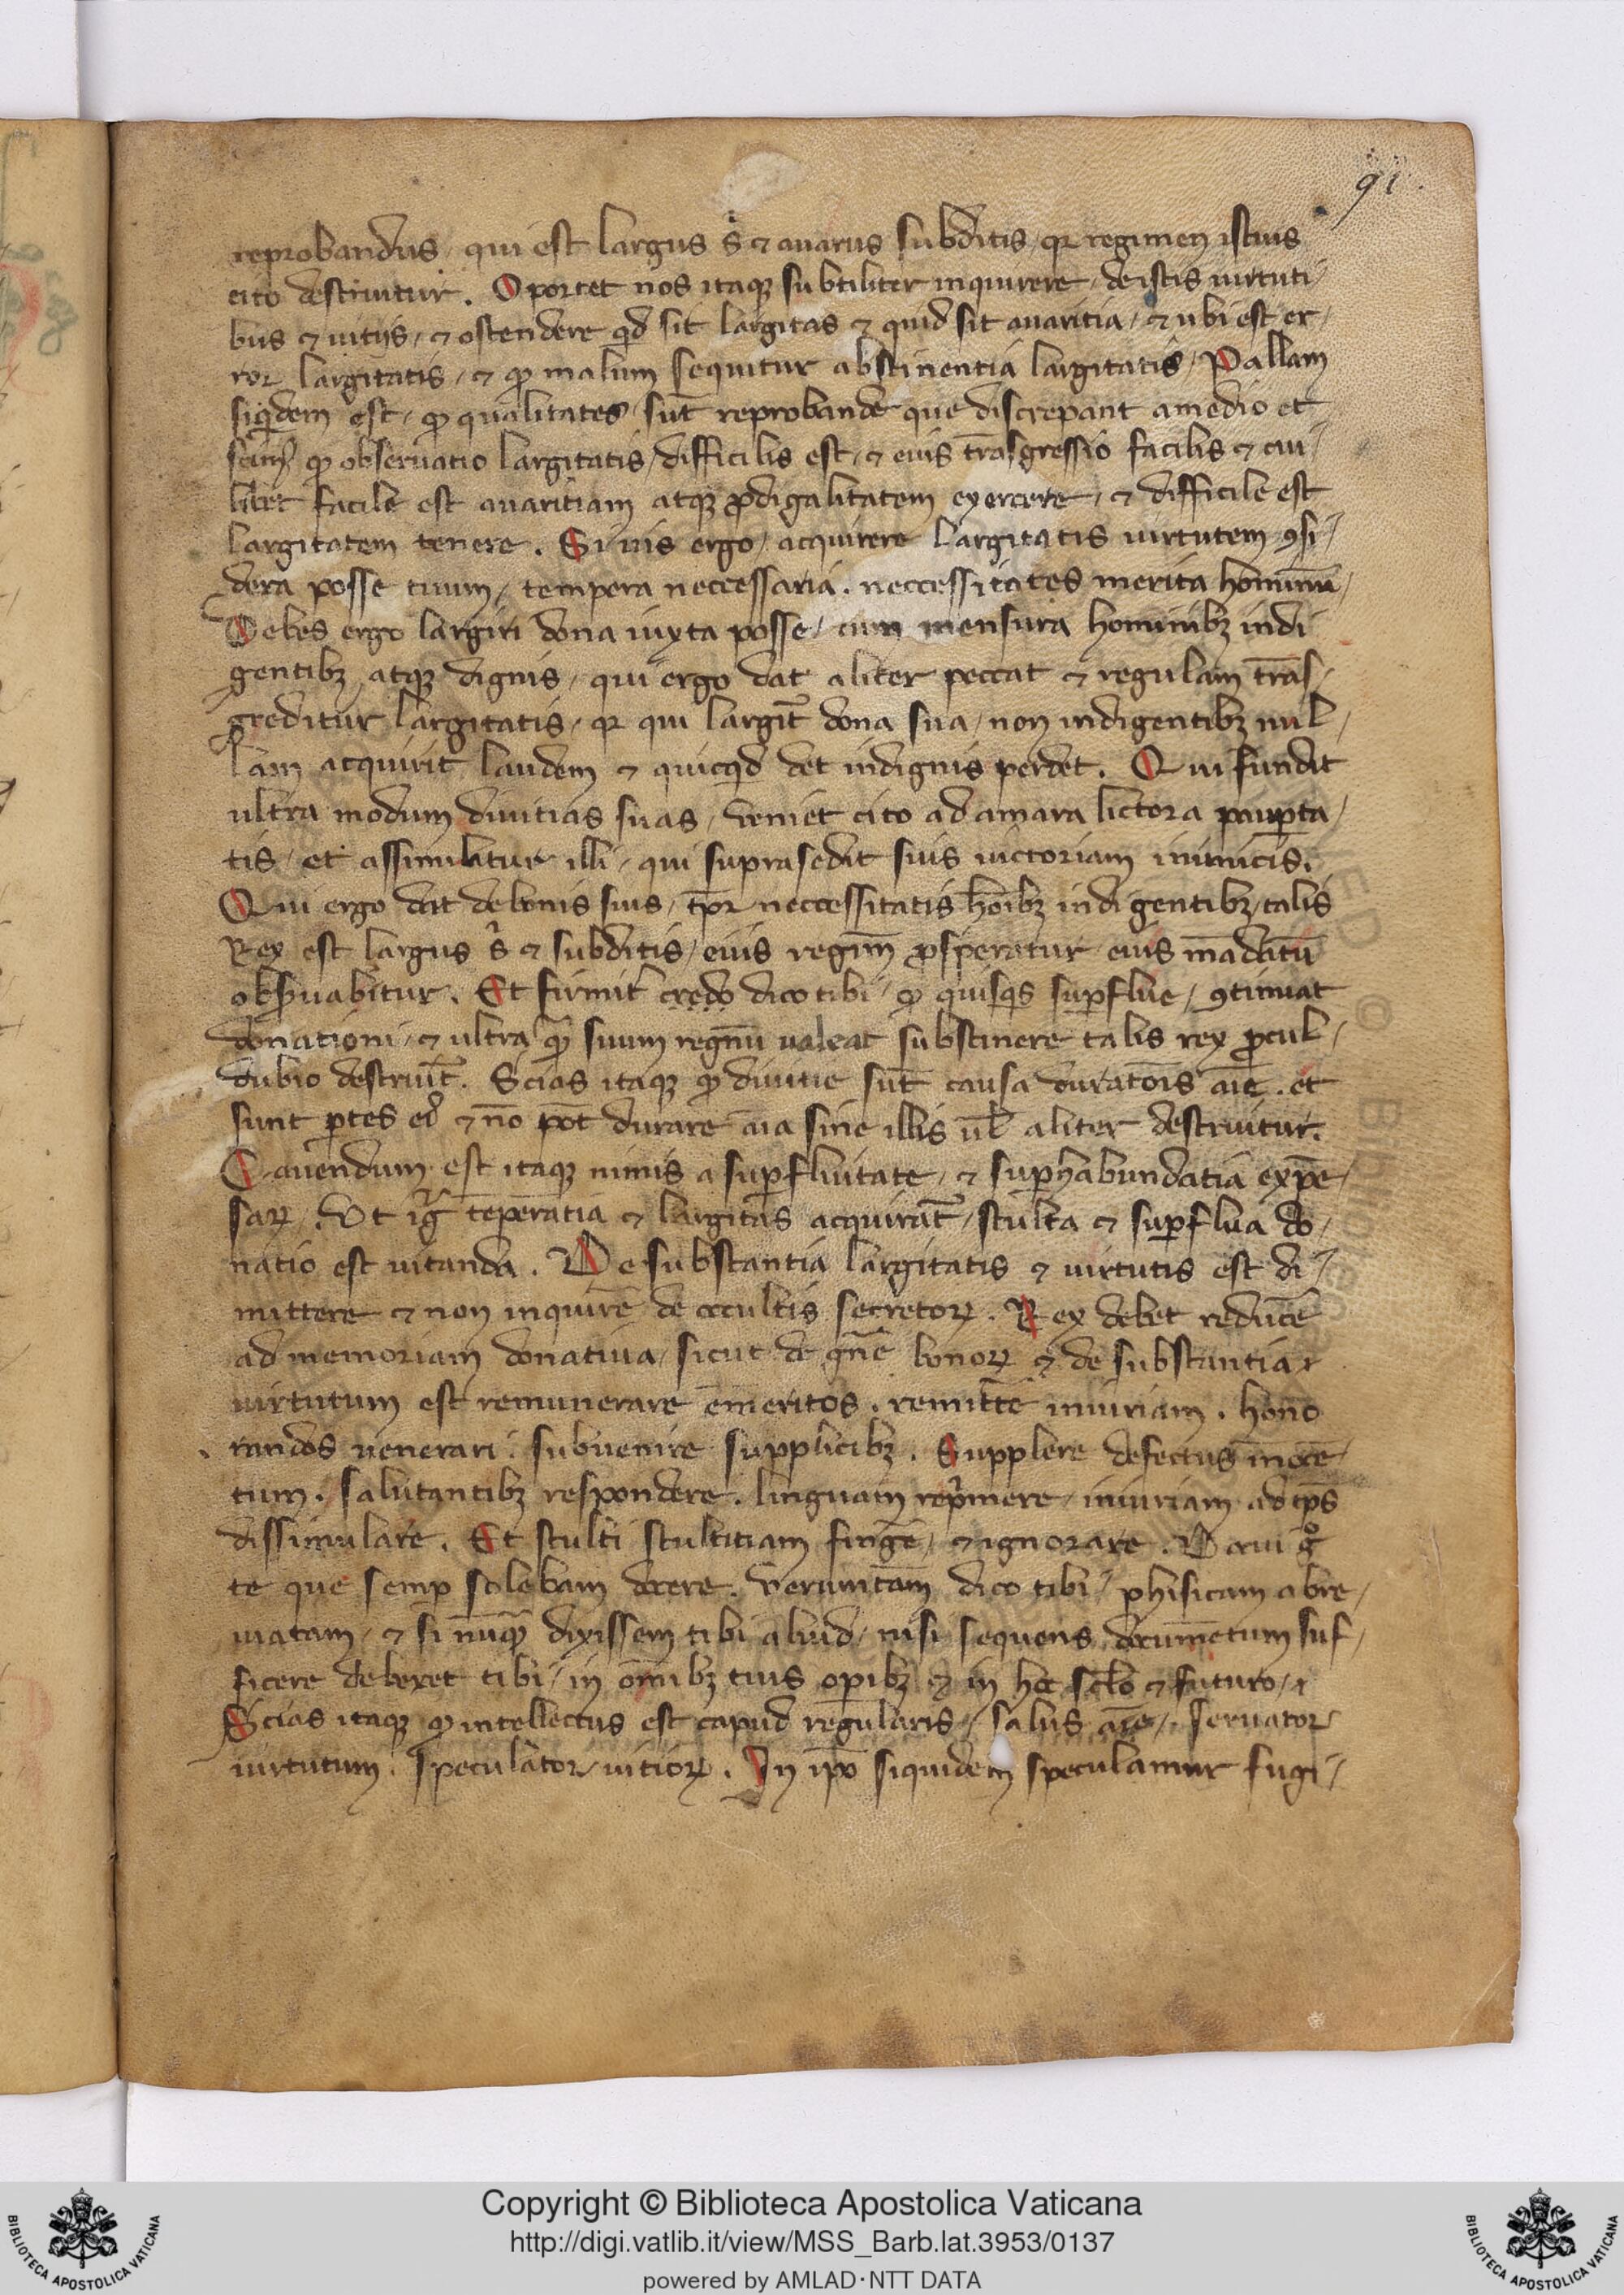 91.
reprobandus / qui est largus s̄ ⁊ auarus subditis / qr regimen istius
cito destruitur. Oportet nos itaqꝫ subtiliter inquirere / de istis uirtuti /
bus ⁊ uitijs / ⁊ ostendere qd sit largitas ⁊ quid sit auaritia / ⁊ ubi est er /
ror largitatis / ⁊ ꝙ malum sequitur abstinentia largitatis / Pallam
siqdem est / ꝙ qualitates sūt reprobande que discrepant a medio et
scim⁹ ꝙ obseruatio largitatis / difficilis est / ⁊ eius trāsgressio facilis ⁊ cui /
libet facile est auaritiam atqꝫ ꝓdigalitatem exercere / ⁊ difficile est
largitatem tenere. Si uis ergo / acquirere largitatis uirtutem ꝯsi /
dera posse tuum / tempera neccessaria. neccessitates merita hominum /
Debes ergo largiri dona iuxta posse / cum mensura hominibꝫ indi
gentibꝫ atqꝫ dignis / qui ergo dat aliter peccat ⁊ regulam trās /
greditur largitatis / qr qui largit᷑ dona sua / non indigentibꝫ nul /
lam acquirit laudem ⁊ quicqd det indignis perdet. Qui fundit
ultra modum diuitias suas / ueniet cito ad amara lictora pauꝑta /
tis / et assimilatur illi / qui supra se dat suis uictoriam inimicis.
Qui ergo dat de bonis suis / tp̄r neccessitatis hoībꝫ indigentibꝫ / talis
Rex est largus s̄ ⁊ subditis / eius regim̄ ꝓsperatur eius mādatū
obs̄uabitur. Et firmit᷑ credo dico tibi / ꝙ quisqs suꝑflue / ꝯtinuat
donationi / ⁊ ultra ꝙ suum regnū ualeat substinere talis rex ꝓcul /
dubio destruit᷑. Scias itaqꝫ ꝙ diuitie sūt causa duratōis aīe. et
sunt ꝑtes ei⁹ ⁊ nō pōt durare aīa sine illis ul̄ aliter destruitur.
Cauendum est itaqꝫ nimis a suꝑfluitate / ⁊ suꝑhabundātia expē /
saꝝ / Ut igr̄ tēperātia ⁊ largitas acquirāt᷑ / stulta ⁊ suꝑflua do /
natio est uitanda. De substantia largitatis ⁊ uirtutis est di /
mittere ⁊ non inquirē de occultis secretoꝝ. Rex debet reducē
ad memoriam donatiua / sicut de gn̄e bonoꝝ ⁊ de substantia ⁊
uirtutum est remunerare emeritos. remittē iniuriam. hono
randos uenerari. subuenire supplicibꝫ. Supplere defectus īnocē /
tum. salutantibꝫ respondere. linguam rep̄mere / iniuriam ad tp̄s
dissimulare. Et stulti stultitiam fingē / ⁊ ignorare. Docui g̊
te que semꝑ solebam docere. Verumtam̄ dico tibi / phisicam abre /
uiatam / ⁊ si nūꝙ dixissem tibi aliud / nisi sequens documētum suf /
ficere deberet tibi / in oīnibꝫ tuis oꝑibꝫ ⁊ in hoc sclo ⁊ futuro / ⁊
Scias itaqꝫ ꝙ intellectus est capud regularis / salus aīe / seruator
uirtutum. speculator uitioꝝ. In ip̄o siquidem speculamur fugi /
Copyright © Biblioteca Apostolica Vaticana
http://digi.vatlib.it/view/MSS_Barb.lat.3953/0137
powered by AMLAD·NTT DATA
BIBLIOTECA APOSTOLICA VATICANA
BIBLIOTECA APOSTOLICA VATICANA